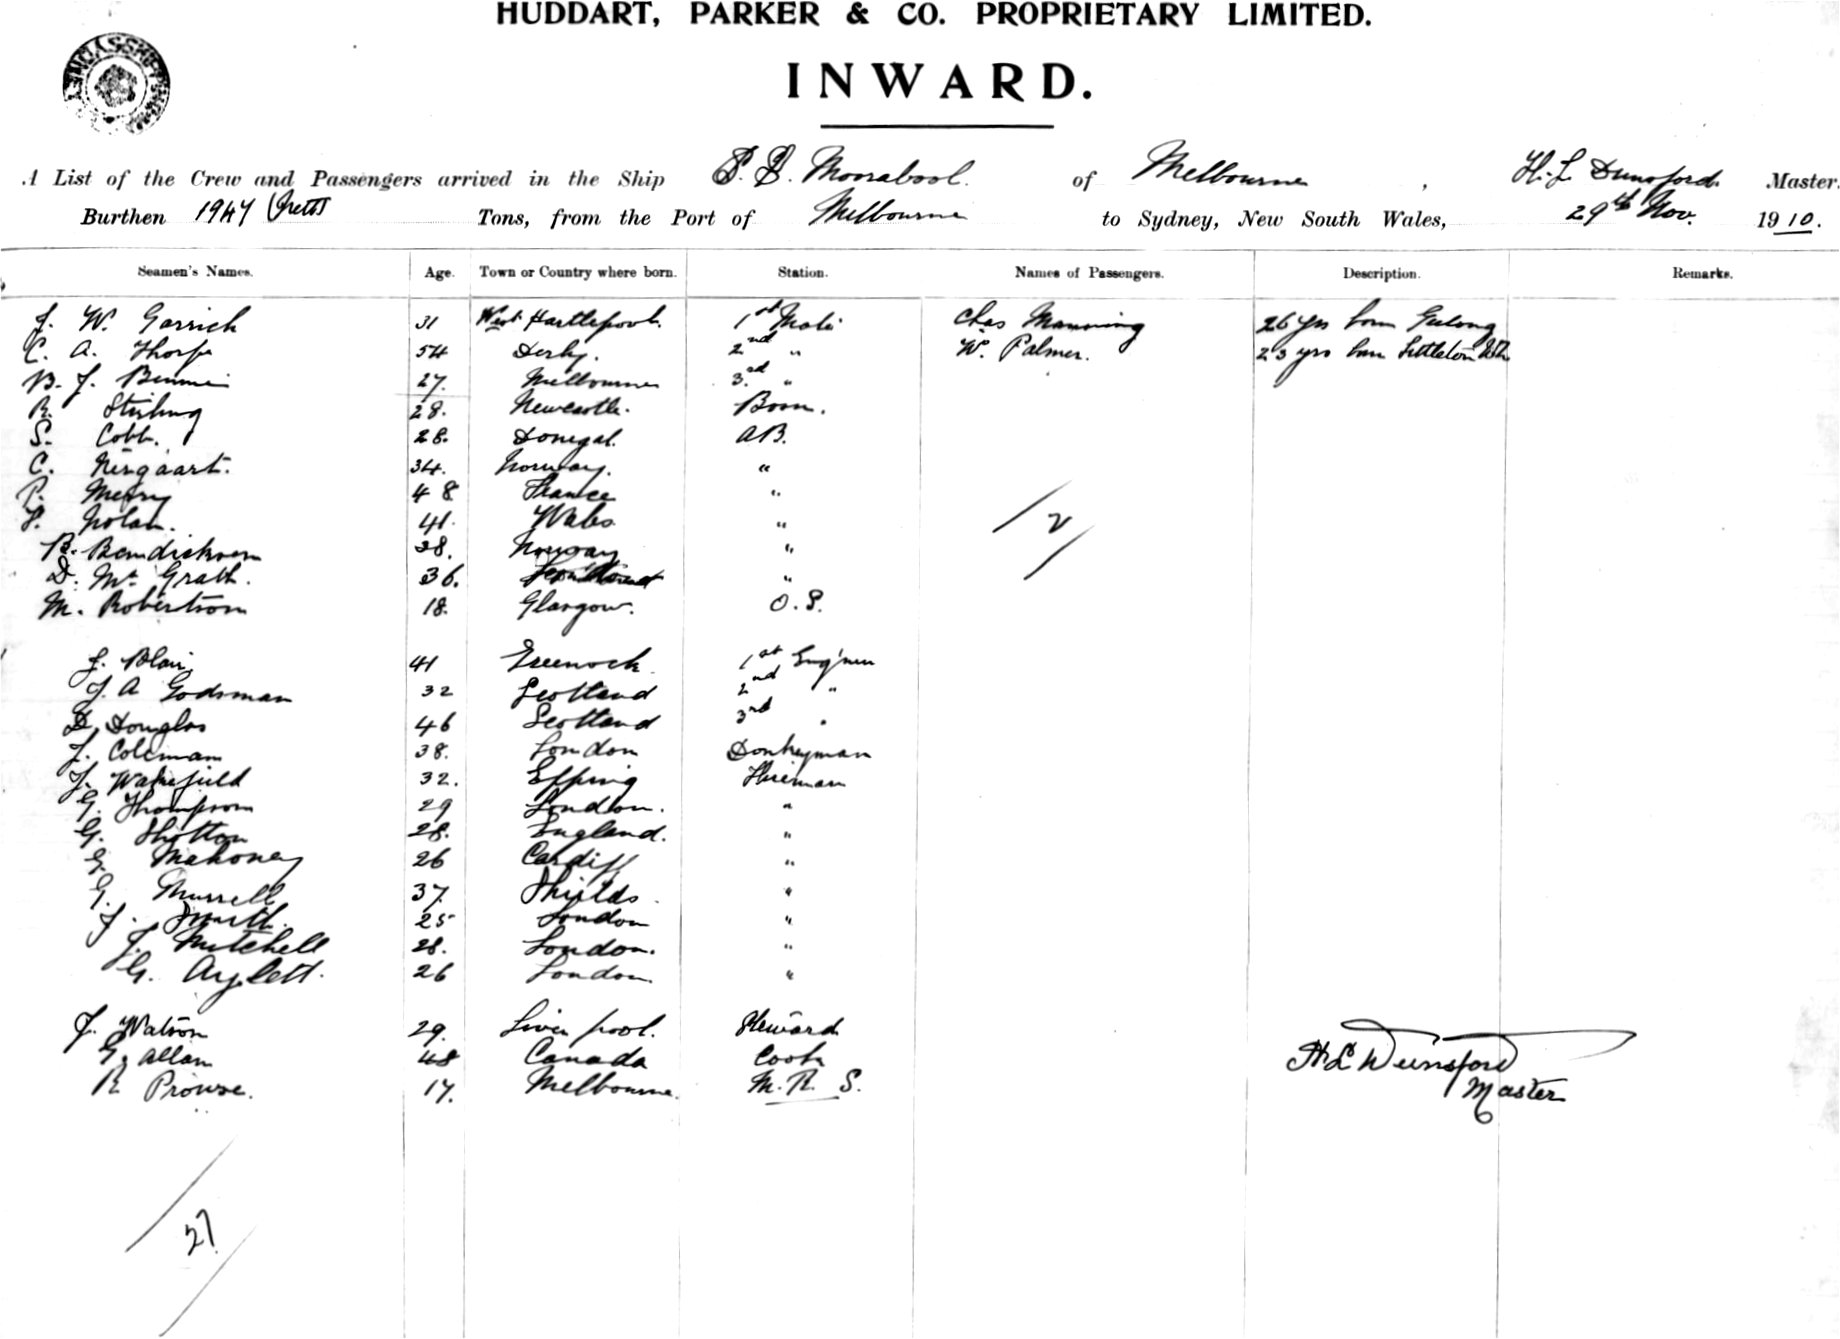 HUDDART, PARKER & CO. PROPRIETARY LIMITED.
INWARD.
A List of the Crew and Passengers arrived in the Ship S.S. Moorabool. of Melbourne, H. L. Dunsford. Master.
Burthen 1947 Tons, from the Port of Melbourne to Sydney, New South Wales, 29th Nov. 1910.
Seamen's Names. Age. Town or Country where born. Station. Names of Passengers. Description. Remarks.
J. W. Garrick 31 West Hartlepool. 1st Mate Chas Manning 26 yrs born Geelong
C. A. Thorpe 54 Derby. 2nd " W. Palmer. 23 yrs born Littleton NZ
B. J. Binnie 27. Melbourne 3rd "
R. Stirling 28. Newcastle. Bosn.
S. Cobb. 28. Donegal. AB.
C. Nergaart. 34. Norway. "
P. Merry 48 France "
Nolan. 41. Wales "
B. Bendicksen 38. Norway "
D. McGrath. 36. "
M. Robertson 18. Glasgow. O.S.
J. Blair 41 Greenock. 1st Engineer
J. A Godsman 32 Scotland 2nd "
D. Douglas 46 Scotland 3rd "
J. Coleman 38. London Donkeyman
J. Wakefield 32. Epping Fireman
G. Thompson 29 London. "
G. Shotton 28. England. "
G. Mahoney 26 Cardiff "
G. Murrell 37. Shields. "
J. Smith. 25 London "
J. Mitchell 28. London. "
G. Aylett. 26 London "
J. Watson 29. Liverpool. Steward
G. Allan 48 Canada Cook
R Prowse. 17. Melbourne. M.R.S.
2
H L Dunsford
Master
27